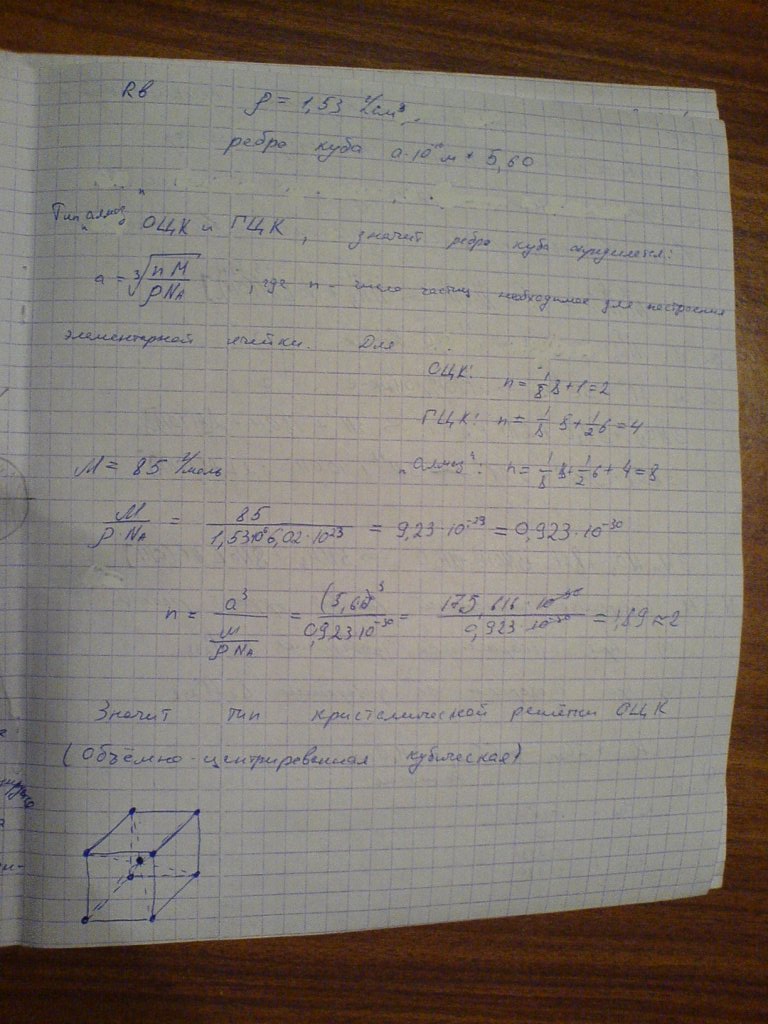 Rb ρ = 1,53 г/см³,
ребро куба a·10⁻¹⁰ м * 5,60
Тип "алмаз" ОЦК и ГЦК, значит ребро куба определяется:
a = ∛(nM / ρN_A), где n - число частиц необходимое для построения
элементарной ячейки. Для
ОЦК: n = 1/8 8 + 1 = 2
ГЦК: n = 1/8 8 + 1/2 6 = 4
M = 85 г/моль "алмаз": n = 1/8 8 + 1/2 6 + 4 = 8
M / (ρ·N_A) = 85 / (1,53·10⁶ 6,02·10²³) = 9,23·10⁻²⁹ = 0,923·10⁻³⁰
n = a³ / (M / (ρ·N_A)) = (5,60)³ / (0,923·10⁻³⁰) = (175,616·10⁻³⁰) / (0,923·10⁻³⁰) = 1,89 ≈ 2
Значит тип кристалической решётки ОЦК
(Объёмно-центрированная кубическая)